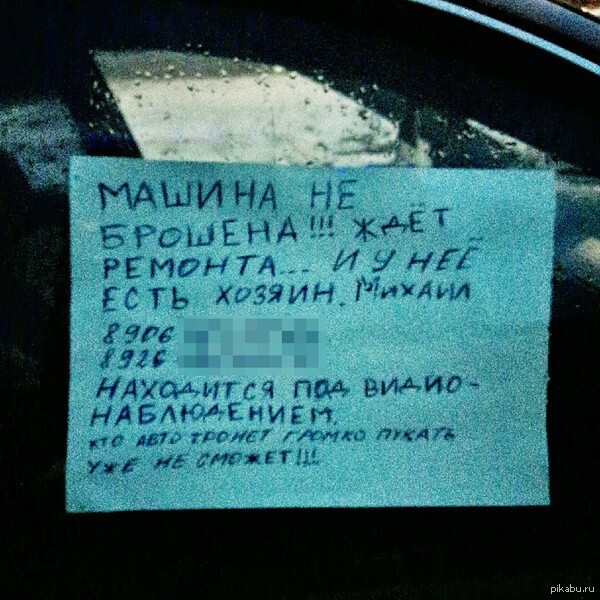 МАШИНА НЕ
БРОШЕНА!!! ЖДЁТ
РЕМОНТА... И У НЕЁ
ЕСТЬ ХОЗЯИН. МИХАИЛ
8906
8926
НАХОДИТСЯ ПОД ВИДИО-
НАБЛЮДЕНИЕМ.
КТО АВТО ТРОНЕТ ГРОМКО ПУКАТЬ
УЖЕ НЕ СМОЖЕТ!!!
pikabu.ru